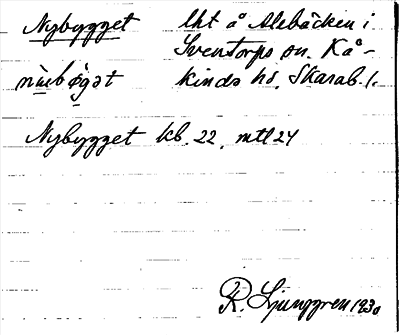 Nybygget lht å Alebäcken i
Sventorps sn. Kå-
kinds hd. Skarab. l.
Nybygget kb. 22, mtl 24
R. Ljunggren 1930